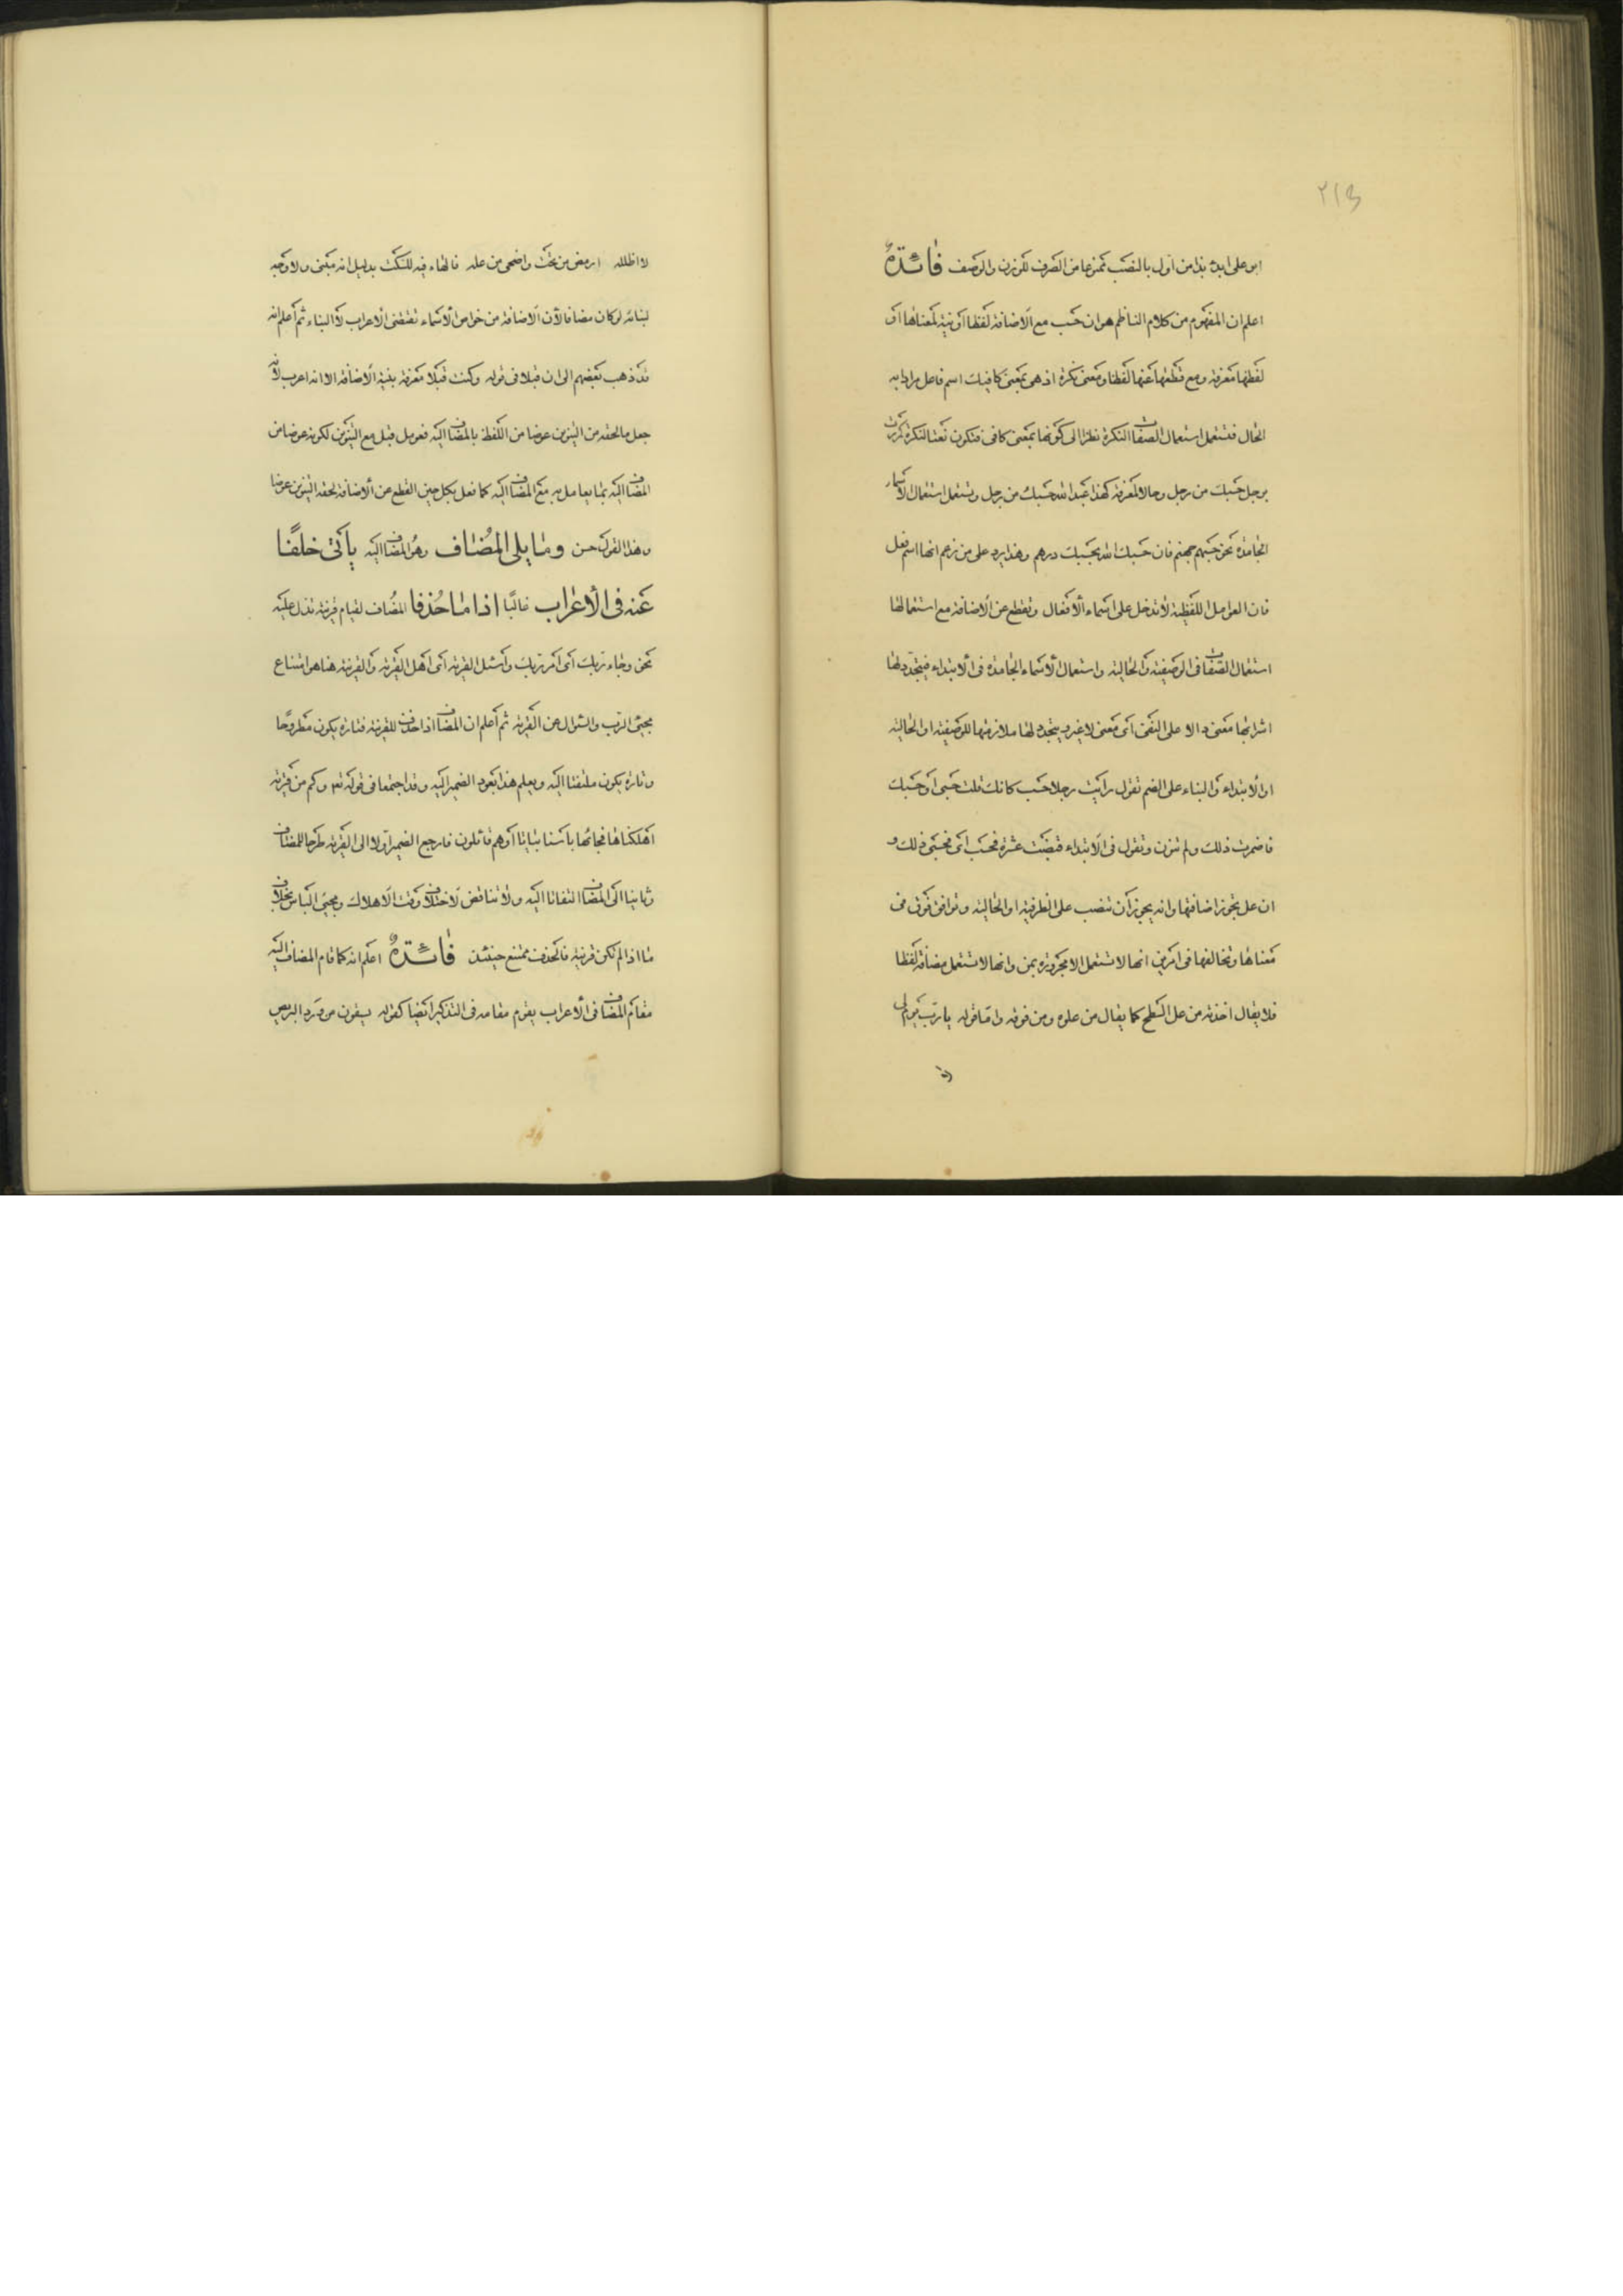 ٢١٣
ابو على ابدء بذا من اول بالنصب ممنوعا من الصرف للوزن والوصف فائدة
اعلم ان المفهوم من كلام الناظم هو ان حسب مع الاضافة لفظا او نية لمعناها او
لفظها معرفة ومع قطعها عنها لفظا ومعنى نكرة اذ هى بمعنى كافيك اسم فاعل مرادا به
الحال فتستعمل استعمال الصفات النكرة نظرا الى كونها بمعنى كافى فتكون نعتا لنكرة كمررت
برجل حسبك من رجل وحالا لمعرفة كهذا عبد الله حسبك من رجل وتستعمل استعمال الاسماء
الجامدة نحو حسبهم جهنم فان حسبك الله بحسبك درهم وهذا يرد على من زعم انها اسم فعل
فان العوامل اللفظية لا تدخل على اسماء الافعال وتقطع عن الاضافة مع استعمالها
استعمال الصفات فى الوصفية والحالية واستعمال الاسماء الجامدة فى الابتداء فيتجدد لها
اشرابها معنى دالا على النفى اى معنى لا غير ويتجدد لها ملازمتها للوصفية او الحالية
او الابتداء والبناء على الضم تقول رايت رجلا حسب كانك قلت حسبى او حسبك
فاضمرت ذلك ولم تنون وتقول فى الابتداء قبضت عشرة فحسب اى فحسبى ذلك و
ان عل يجوز اضافتها وانه يجوز ان تنصب على الظرفية او الحالية وتوافق فوق فى
معناها وتخالفها فى امرين انها لا تستعمل الا مجرورة بمن وانها لا تستعمل مضافة لفظا
فلا يقال اخذته من عل السطح كما يقال من علوه ومن فوقه واما قوله يا رب يوم لى
لا اظلله ارمض من تحت واضحى من عله فالهاء فيه للسكت بدليل انه مبنى ولا وجه
لبنائه لو كان مضافا لان الاضافة من خواص الاسماء تقتضى الاعراب لا البناء ثم اعلم انه
قد ذهب بعضهم الى ان قبلا فى قوله وكنت قبلا معرفة بنية الاضافة الا انه اعرب لانه
جعل ما لحقه من التنوين عوضا من اللفظ بالمضاف اليه فعومل قبل مع التنوين لكونه عوضا من
المضاف اليه بما يعامل به مع المضاف اليه كما فعل بكل حين القطع عن الاضافة لحقه التنوين عوضا
وهذا القول حسن وما يلى المضاف وهو المضاف اليه يأتى خلفا
عنه فى الاعراب غالبا اذا ما حذفا المضاف لقيام قرينة تدل عليه
نحو وجاء ربك اى امر ربك واسئل القرية اى اهل القرية والقرينة هنا هو امتناع
مجيئ الرب والسؤال عن القرية ثم اعلم ان المضاف اذا حذف للقرينة فتارة يكون مطروحا
وتارة يكون ملتفتا اليه ويعلم هذا بعود الضمير اليه وقد اجتمعا فى قوله تعـ وكم من قرية
اهلكناها فجائها بأسنا بياتا او هم قائلون فارجع الضمير اولا الى القرية طرحا للمضاف
وثانيا الى المضاف التفاتا اليه ولا تناقض لاختلاف وقت الاهلاك ومجيئ البأس بخلاف
ما اذا لم تكن قرينة فالحذف ممتنع حينئذ فائدة اعلم انه كما قام المضاف اليه
مقام المضاف فى الاعراب يقوم مقامه فى التذكير ايضا كقوله يسقون من ورد البريص